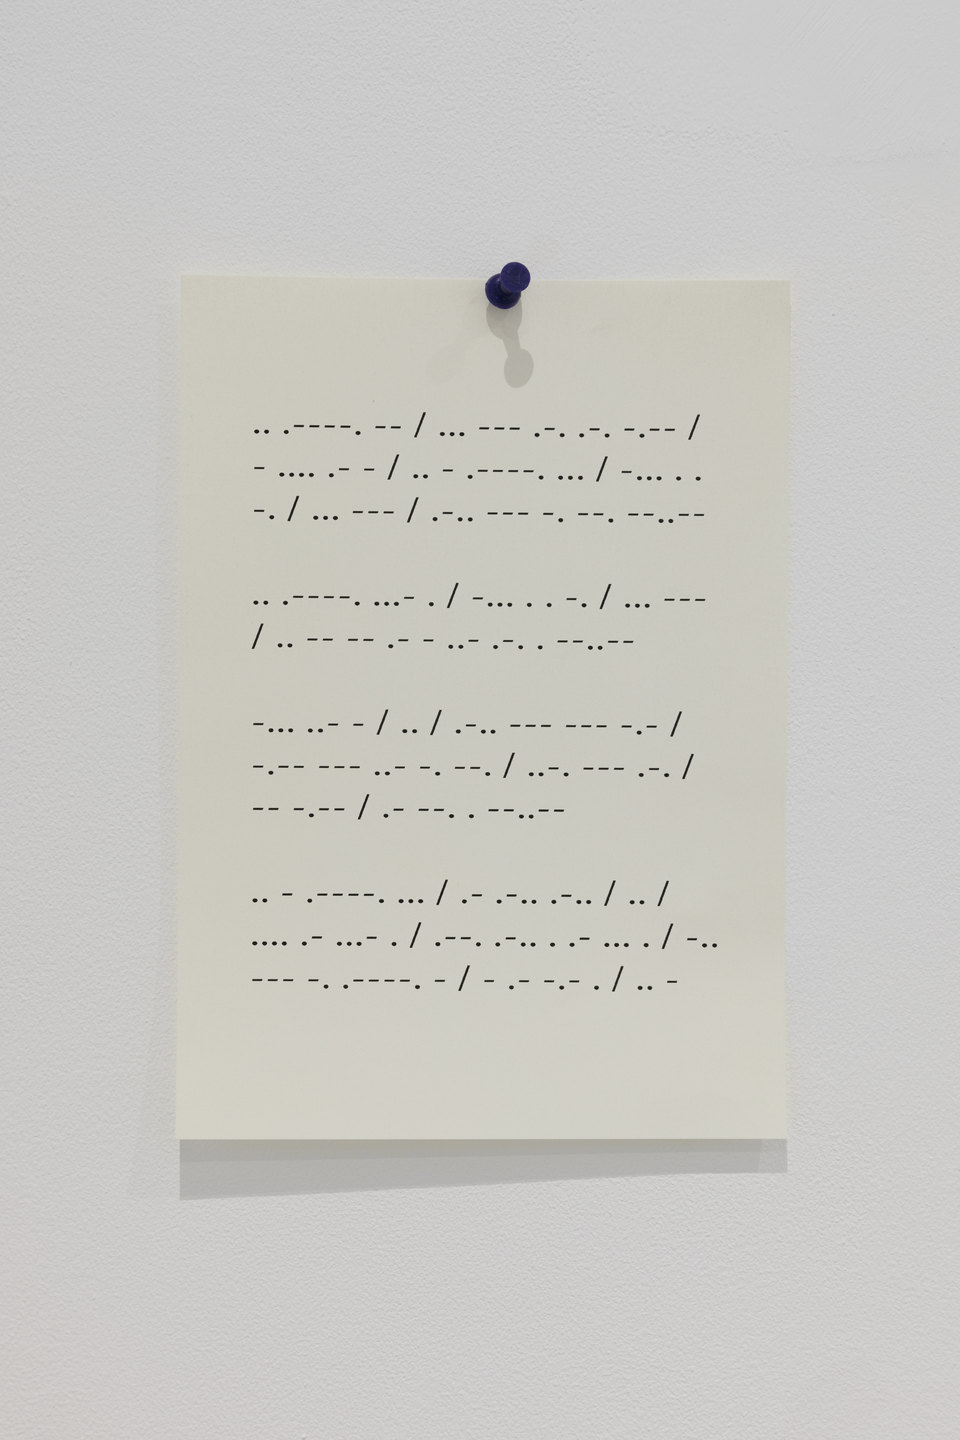 .. .----. -- / ... --- .-. .-. -.-- /
- .... .- - / .. - .----. ... / -... . .
-. / ... --- / .-.. --- -. --. --..--
.. .----. ...- . / -... . . -. / ... ---
/ .. -- -- .- - ..- .-. . --..--
-... ..- - / .. / .-.. --- --- -.- /
-.-- --- ..- -. --. / ..-. --- .-. /
-- -.-- / .- --. . --..--
.. - .----. ... / .- .-.. .-.. / .. /
.... .- ...- . / .--. .-.. . .- ... . / -..
--- -. .----. - / - .- -.- . / .. -